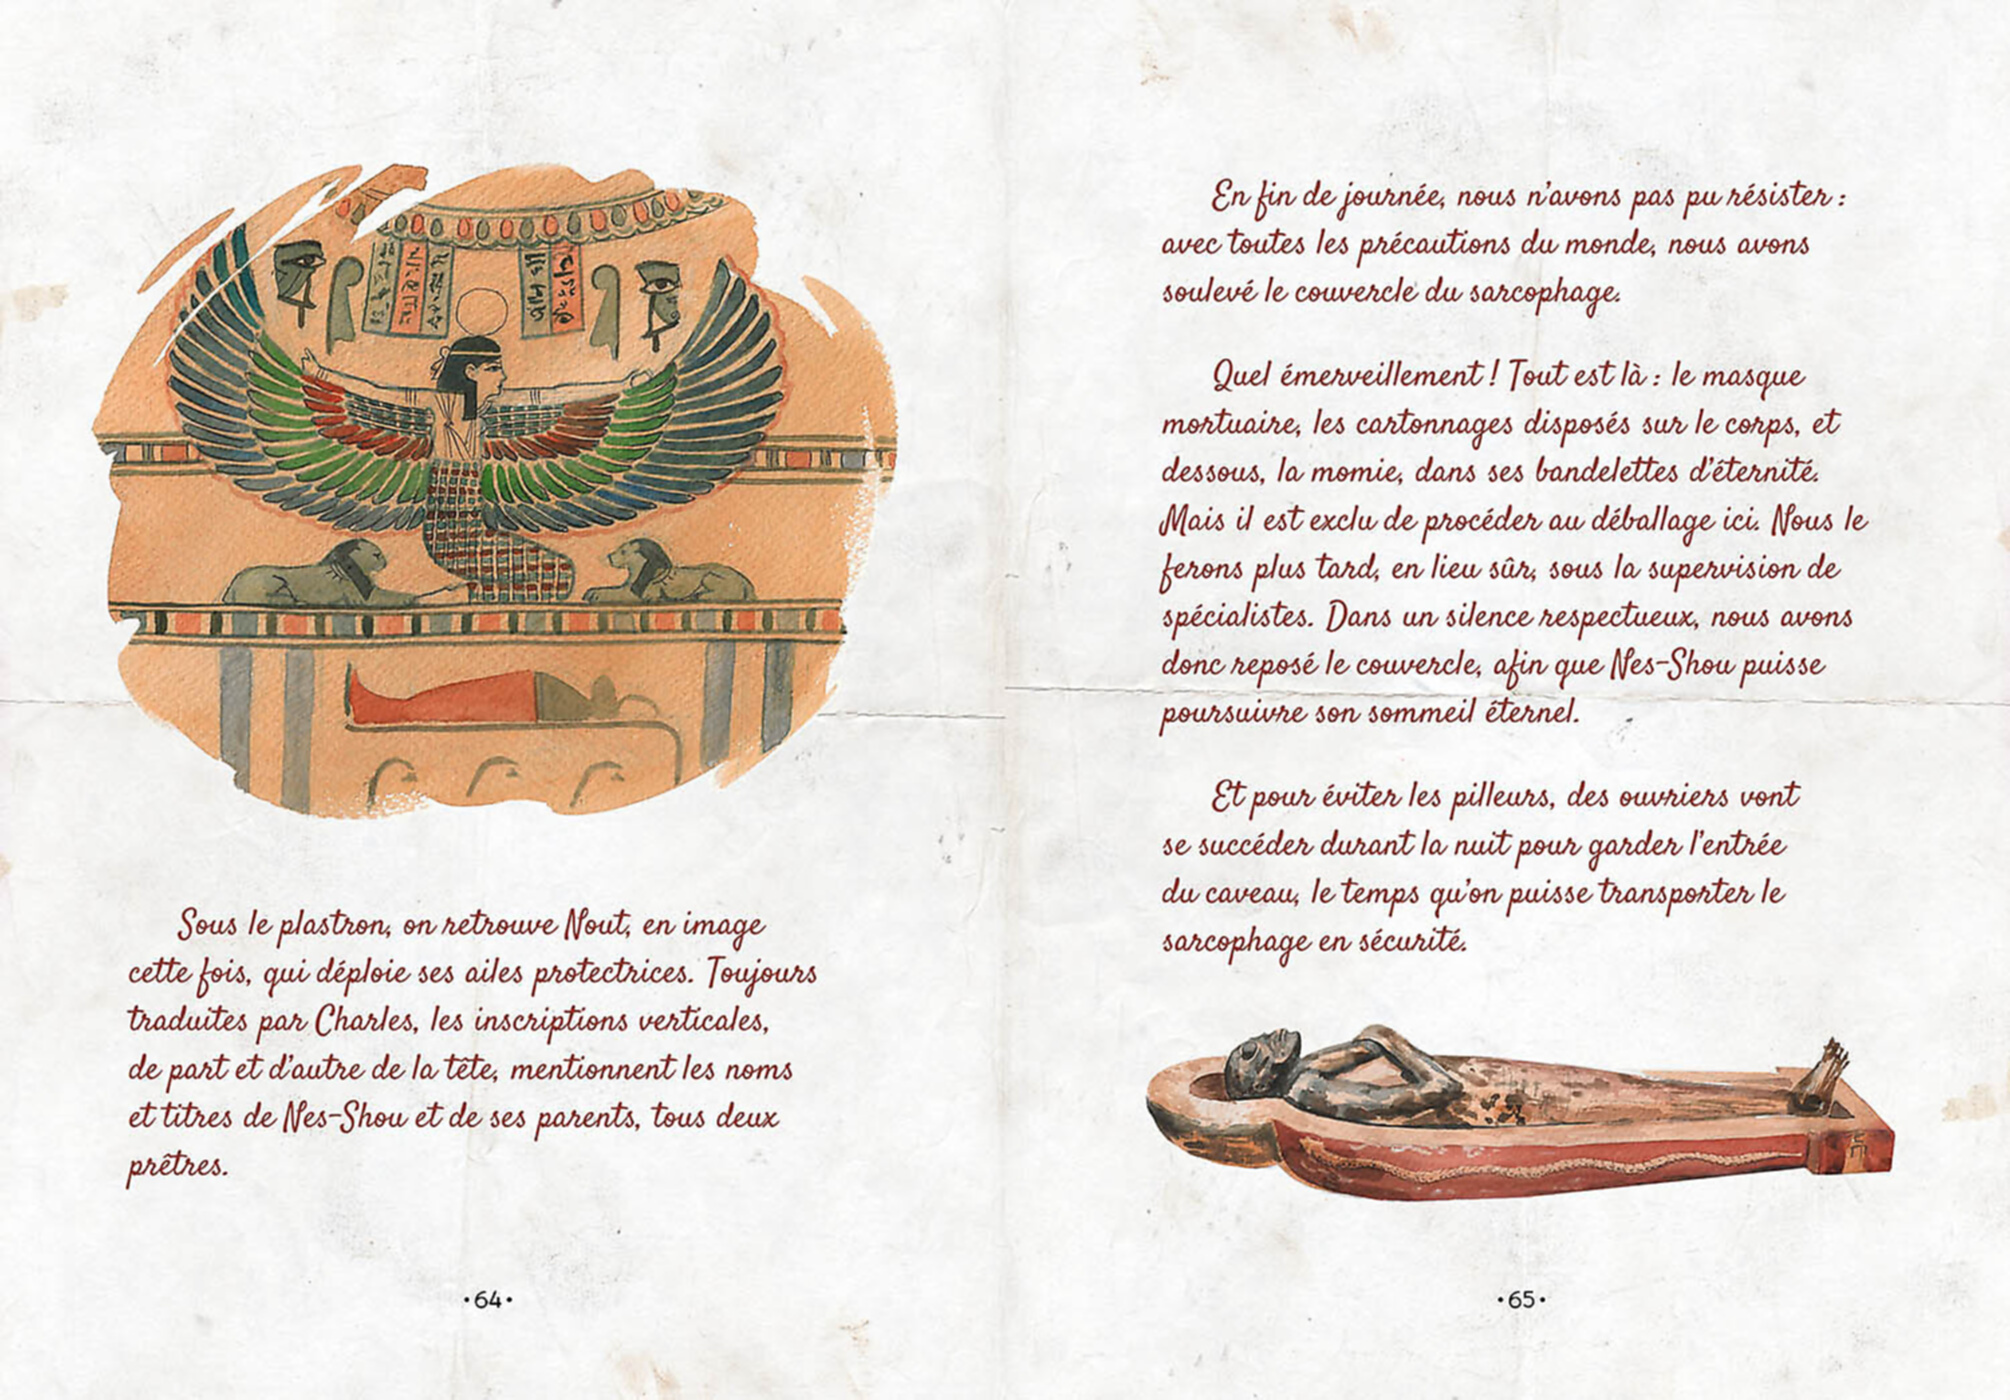 Sous le plastron, on retrouve Nout, en image
cette fois, qui déploie ses ailes protectrices. Toujours
traduites par Charles, les inscriptions verticales,
de part et d'autre de la tête, mentionnent les noms
et titres de Nes-Shou et de ses parents, tous deux
prêtres.
•64•
En fin de journée, nous n'avons pas pu résister :
avec toutes les précautions du monde, nous avons
soulevé le couvercle du sarcophage.
Quel émerveillement ! Tout est là : le masque
mortuaire, les cartonnages disposés sur le corps, et
dessous, la momie, dans ses bandelettes d'éternité.
Mais il est exclu de procéder au déballage ici. Nous le
ferons plus tard, en lieu sûr, sous la supervision de
spécialistes. Dans un silence respectueux, nous avons
donc reposé le couvercle, afin que Nes-Shou puisse
poursuivre son sommeil éternel.
Et pour éviter les pilleurs, des ouvriers vont
se succéder durant la nuit pour garder l'entrée
du caveau, le temps qu'on puisse transporter le
sarcophage en sécurité.
•65•